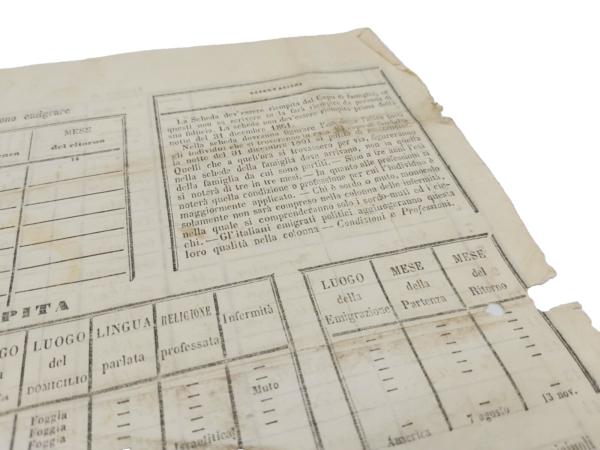 OSSERVAZIONE
La Scheda dev'essere riempita dal Capo di famiglia; se
questi non sa scrivere la farà riempire da persona di
sua fiducia. La scheda dev'essere riempita prima della
notte del 31 dicembre 1861.
Nella scheda dovranno figurare
gli individui che si troveranno
la notte del 31
Quelli che a quell'ora si trovassero per via, figureranno
nella scheda della famiglia dove arrivano, non in quella
della famiglia da cui sono partiti. — Sino a tre mesi l'età
si noterà di tre in tre mesi. — In quanto alle professioni si
noterà quella condizione o professione per cui l'individuo è
maggiormente applicato. — Chi è sordo o muto,
solamente non sarà compreso nella colonna delle infermità
nella quale si comprenderanno solo i sordo-muti ed i cie-
chi. — Gl'italiani emigrati politici aggiungeranno questa
loro qualità nella colonna — Condizioni e Professioni.
emigrare
MESE
del ritorno
14
PITA
LUOGO
del
DOMICILIO
LINGUA
parlata
RELIGIONE
professata
Infermità
LUOGO
della
Emigrazione
MESE
della
Partenza
MESE
del
Ritorno
Foggia
Foggia
Foggia
Israelitica
Muto
America
7 agosto
13 nov.